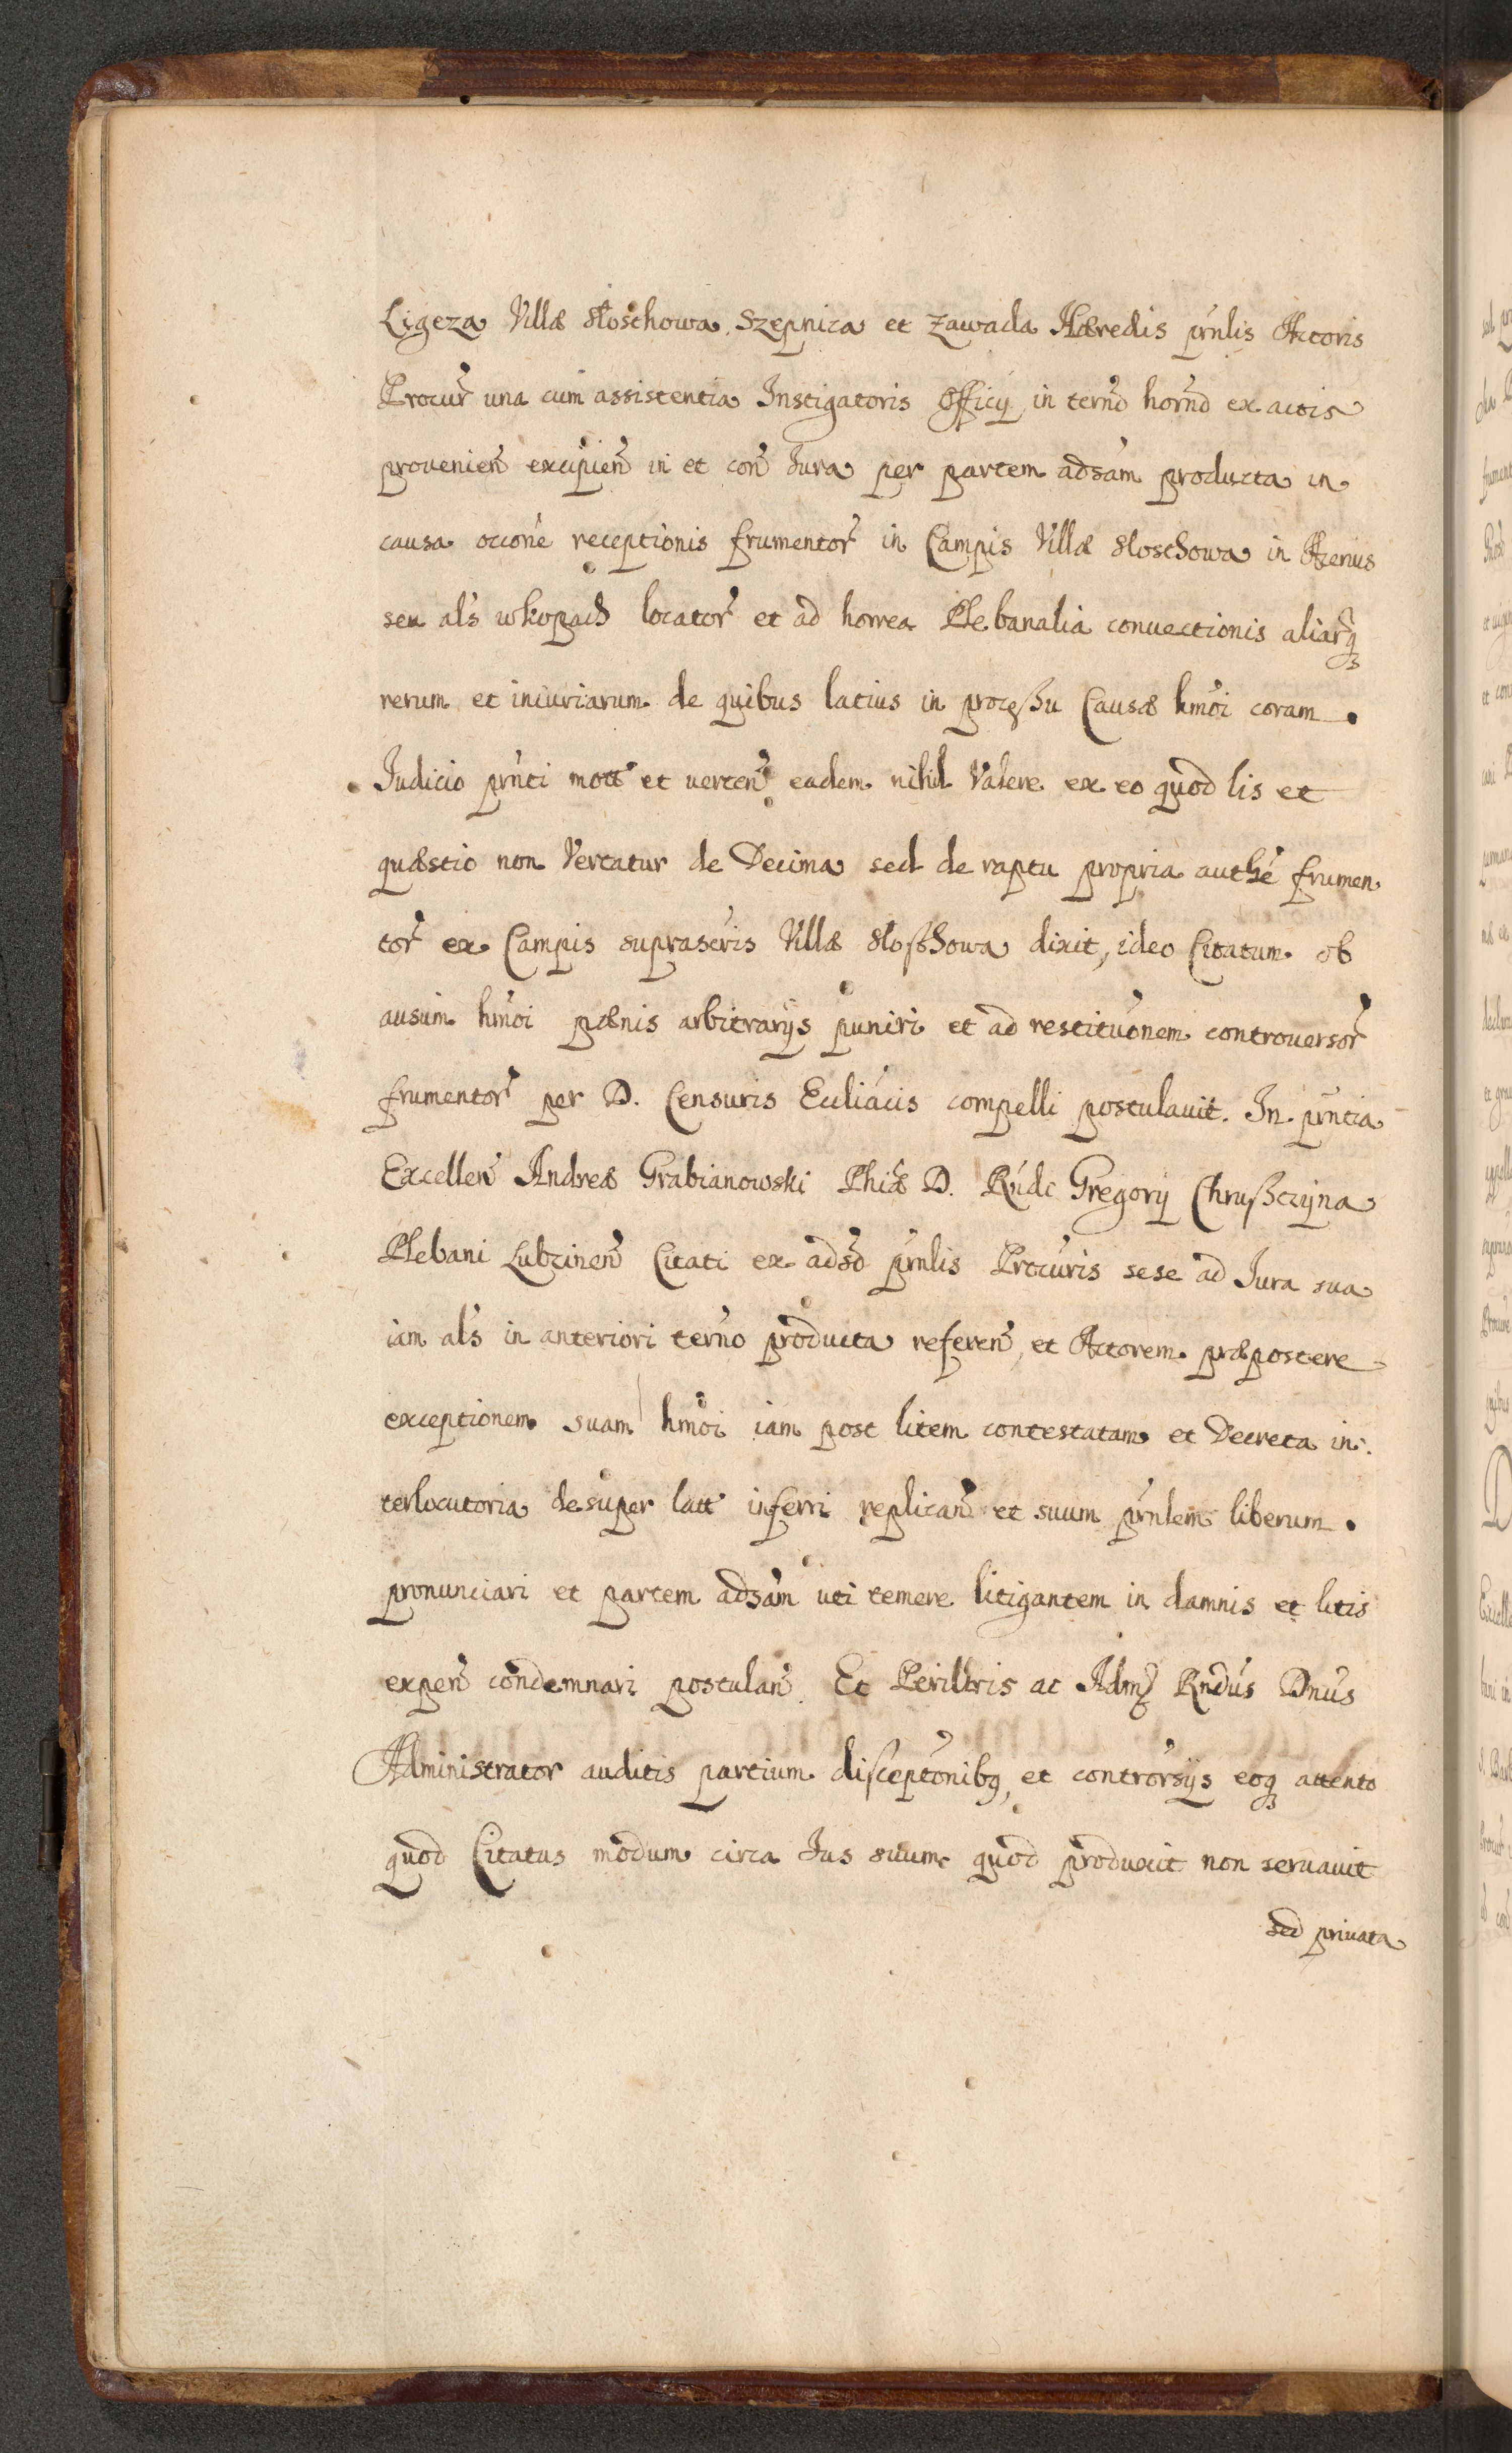 Ligeza Villæ Stoschowa, Szepnica et Zawada Hæredis prn̄lis Actoris
Procur̄ una cum assistentia Instigatoris Officÿ in tern̄o horn̄o ex actis
provenien̄ excipien̄ in et con̄ Iura per partem adsam̄ producta in
causa occōne receptionis frumentor̄ in Campis Villæ Stoschowa in Acerius
seu al̄s wkopach locator̄ et ad horrea Plebanalia conuectionis aliarq̄
rerum et iniuriarum de quibus latius in proceßu Causæ hmōi coram
Iudicio prn̄ti mott̄ et uerten̄ eadem nihil Valere ex eo quod lis et
quæstio non Vertatur de Decima sed de raptu propria authē frumen
tor̄ ex Campis suprascrīs Villæ Stoschowa dixit, ideo Citatum ob
ausum hmōi pænis arbitrarÿs puniri et ad restitūonem controuersor̄
frumentor̄ per D. Censuris Eccliācis compelli postulauit. In prn̄tia
Excellen̄ Andreæ Grabianowski Phiæ D. Rn̄di Gregorÿ Chrußczÿna
Plebani Lubzinen̄ Citati ex adsō prn̄lis Procūris sese ad Iura sua
iam al̄s in anteriori tern̄o producta referen̄, et Actorem præpostere
exceptionem suam hmōi iam post litem contestatam et Decreta in:
terlocutoria desuper latt̄ inferri replican̄ et suum prn̄lem liberum
pronunciari et partem adsam̄ uti temere litigantem in damnis et litis
expen̄ condemnari postulan̄. Et Perilltris ac Adm̄ Rn̄dus Dn̄us
Administrator auditis partium disceptōnibq, et contrōrsÿs eoq attento
quod Citatus modum circa Ius suum quod produxit non seruauit
sed priuata